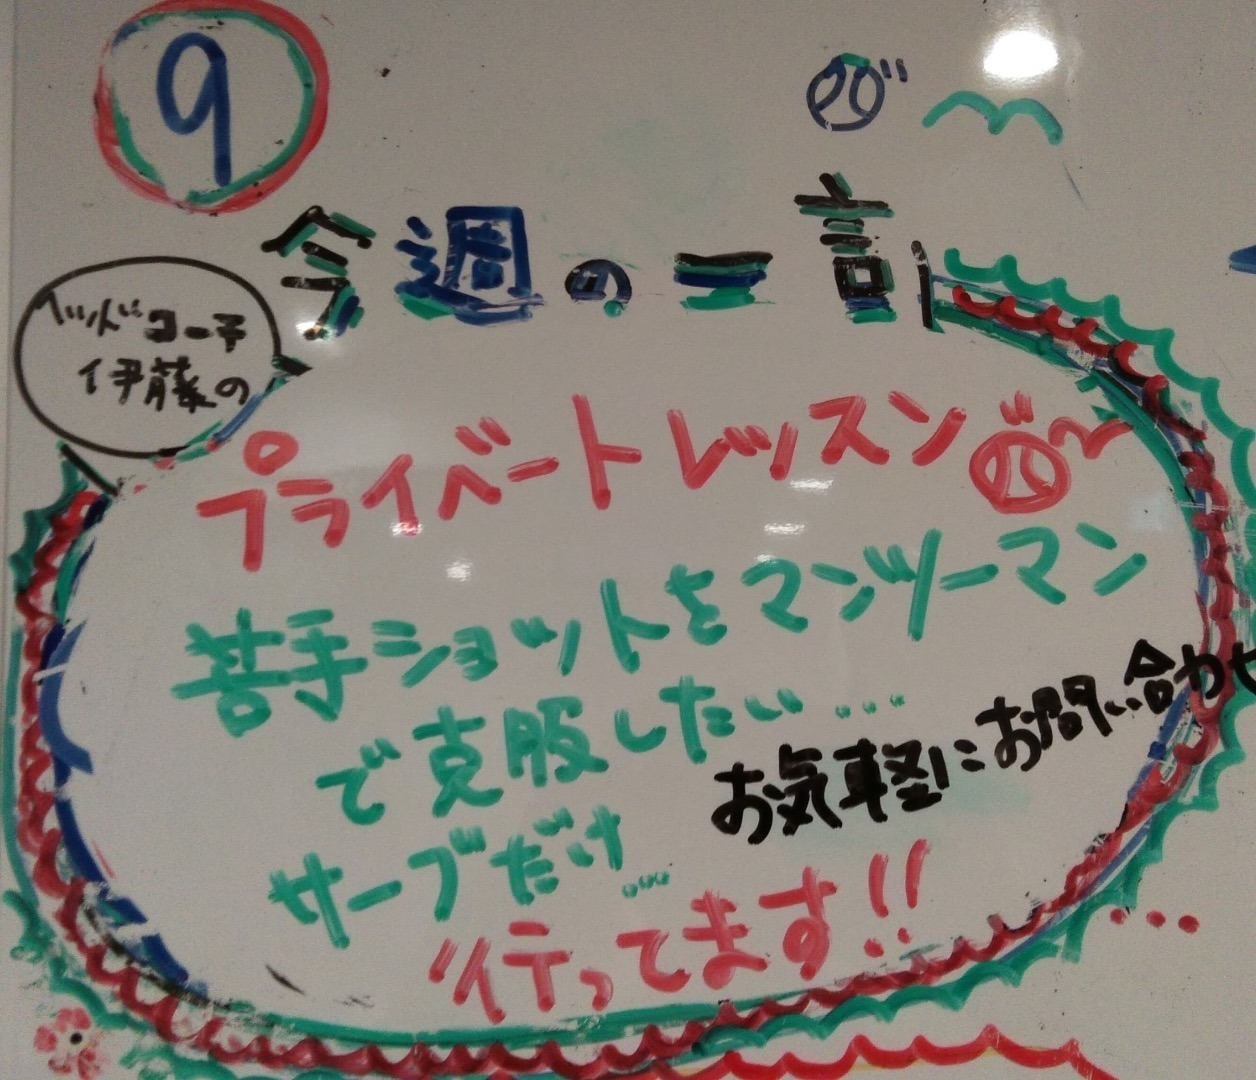 9
今週の一言
ヘッドコーチ
伊藤の
プライベートレッスン
苦手ショットをマンツーマン
で克服したい…
サーブだけ…
お気軽にお問い合わせ
行ってます!!